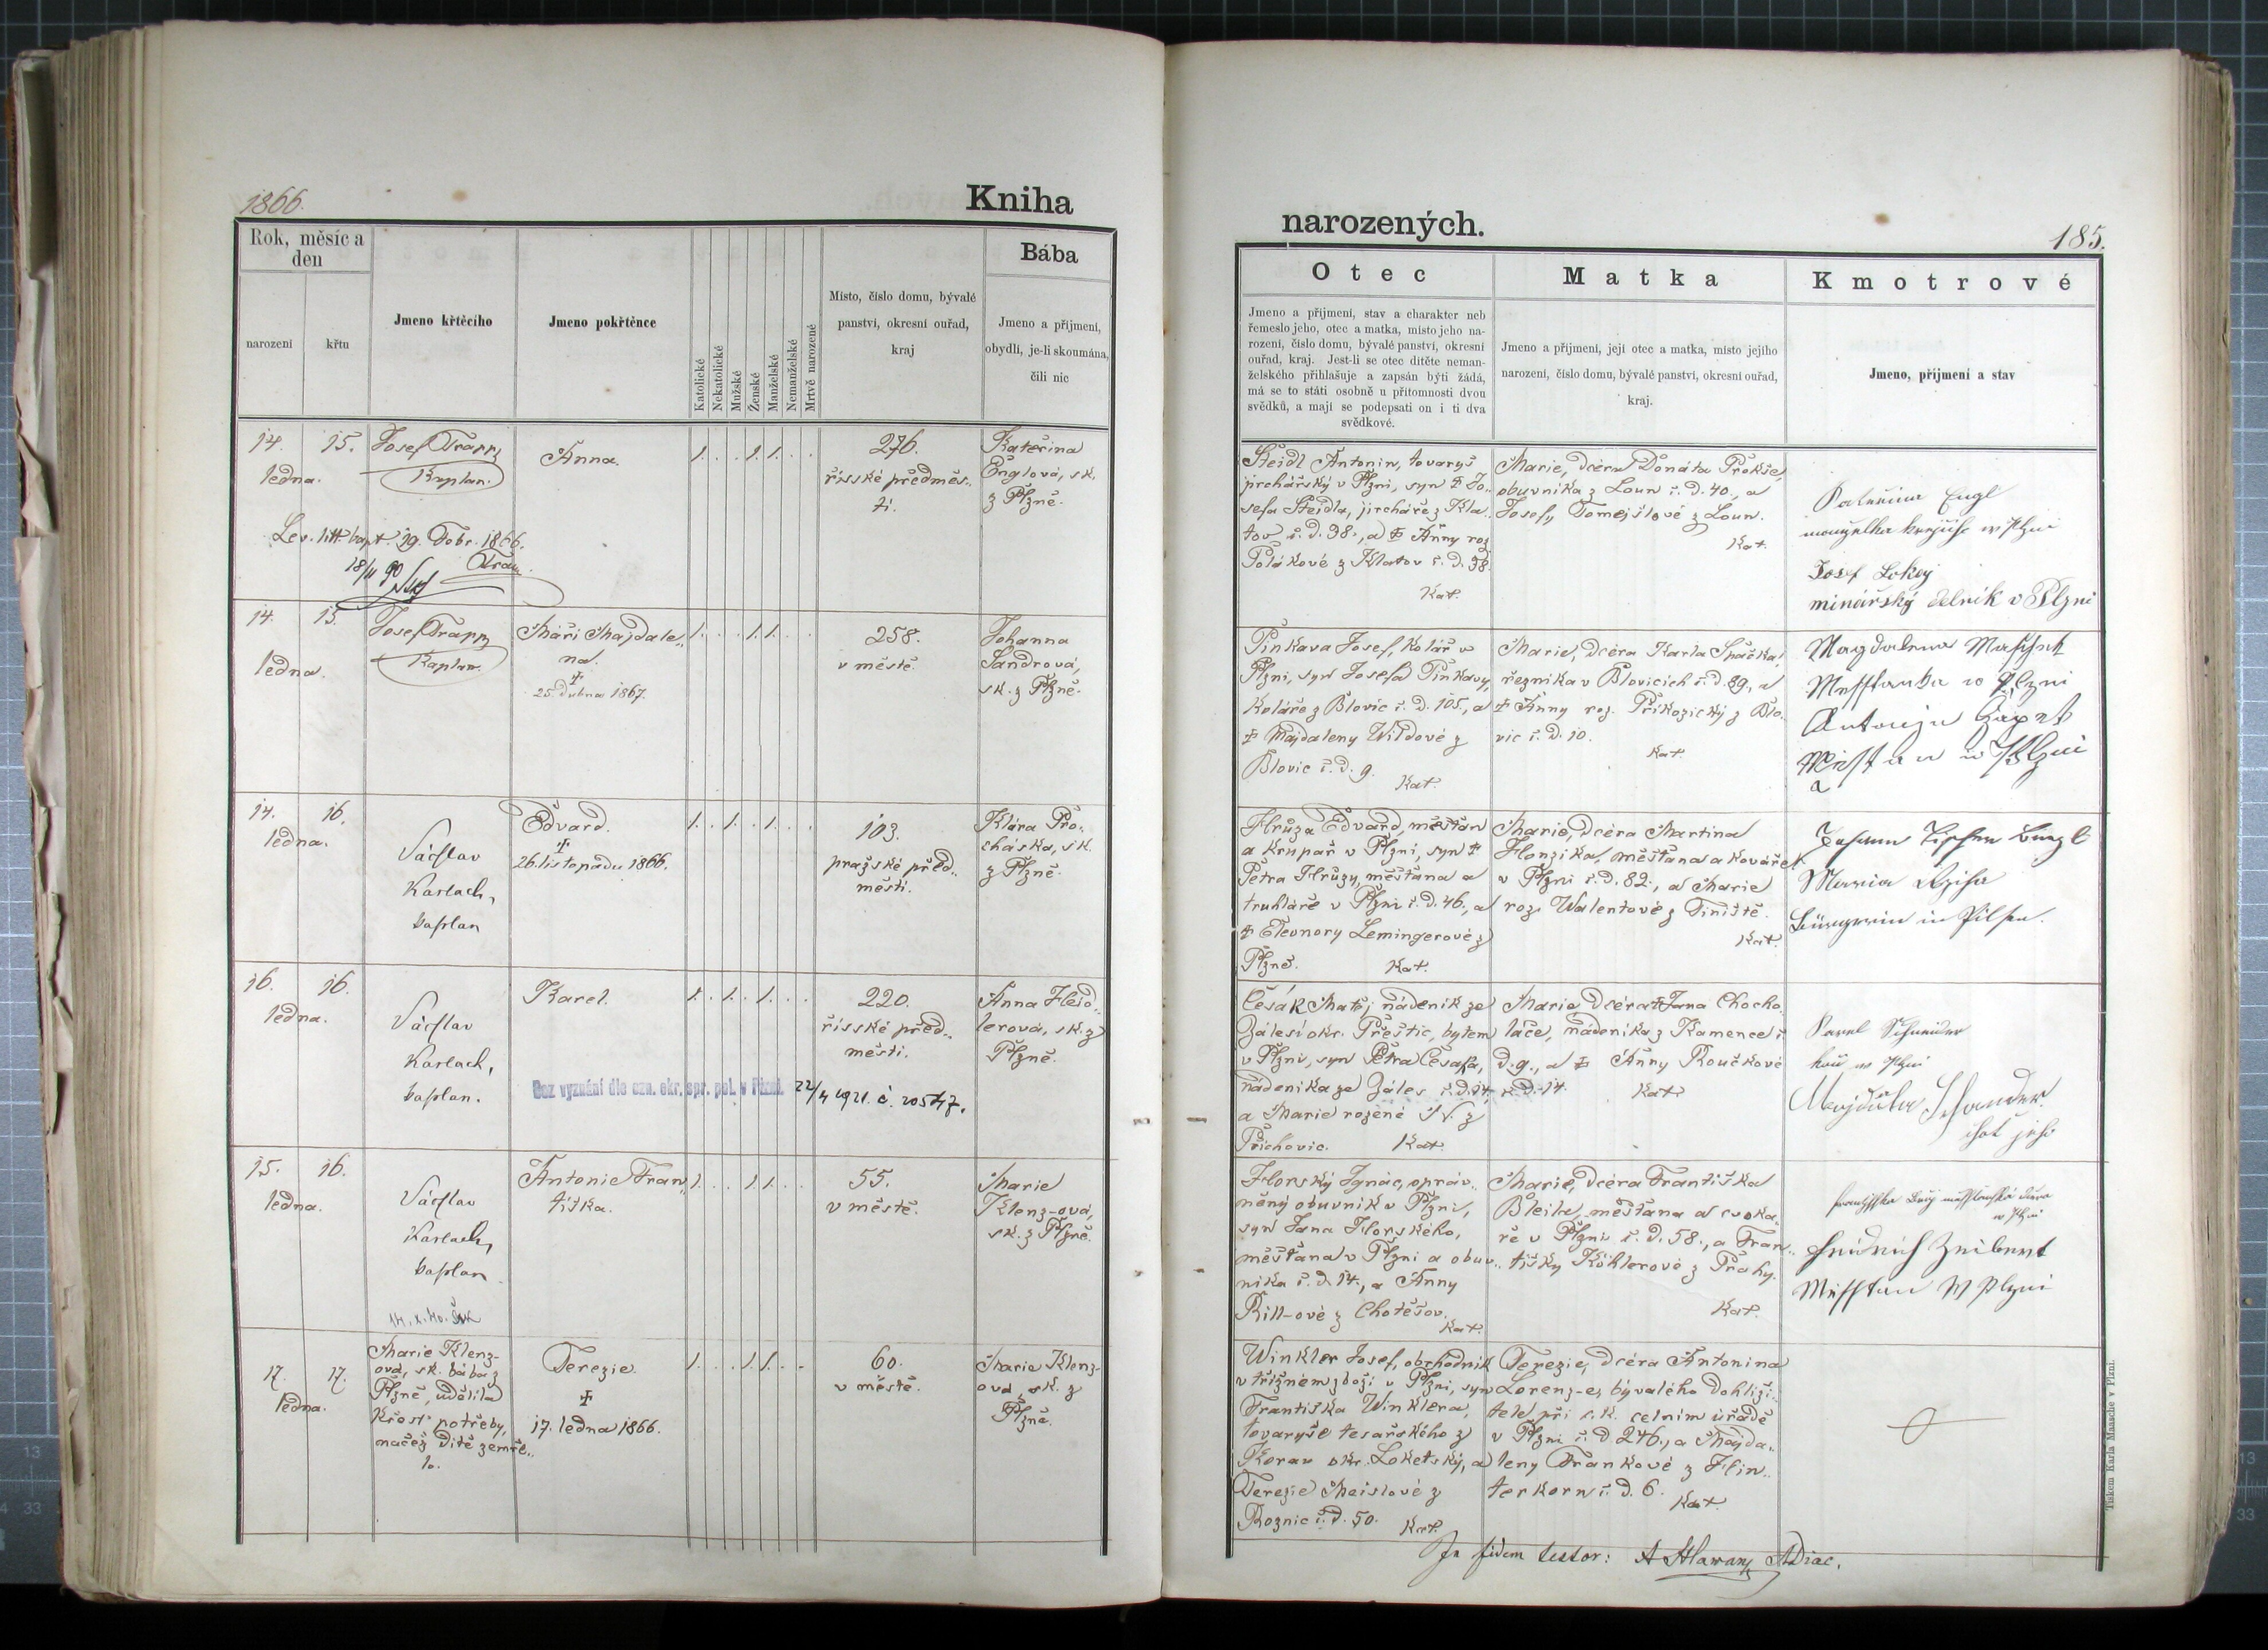 1866.
Kniha
Rok, měsíc a
den
narození
křtu
Jmeno křtěcího
Jmeno pokřtěnce
Katolické
Nekatolické
Mužské
Ženské
Manželské
Nemanželské
Mrtvě narozené
Místo, číslo domu, bývalé
panství, okresní ouřad,
kraj
Bába
Jmeno a příjmení,
obydlí, je-li skoumána,
čili nic
14. 15.
ledna.
Josef Trapp
Kaplan.
Anna.
1. . . 1. 1. . .
276.
říšské předměs„
tí.
Kateřina
Englová, sk.
z Plzně.
Lev. litt. bapt. 29. Dobr. 1866.
18/11 90
14. 15.
ledna.
Josef Trapp
Kaplan.
Máří Majdale„
na.
25. dubna 1867.
1. . . 1. 1. . .
258.
v městě.
Johanna
Sandrová,
sk. z Plzně.
14. 16.
ledna.
Václav
Karlach,
kaplan
Edvard.
26. listopadu 1866.
1. . 1. . 1. . .
103.
pražské před„
městí.
Klára Pro„
cháska, sk.
z Plzně.
16. 16.
ledna.
Václav
Karlach,
kaplan.
Karel.
1. . 1. . 1. . .
220.
říšské před„
městí.
Anna Heid„
lerová, sk. z
Plzně.
Bez vyznání dle ozn. okr. spr. pol. v Plzni. 22/4 1921. č. 20547.
15. 16.
ledna.
Václav
Karlach,
kaplan
Antonie Fran„
tiška.
1. . . 1. 1. . .
55.
v městě.
Marie
Klenz-ová,
sk. z Plzně.
17. 17.
ledna.
Marie Klenz-
ová, sk. bába z
Plzně, udělila
křest potřeby,
načež dítě zemře„
lo.
Terezie.
17. ledna 1866.
1. . . 1. 1. . .
60.
v městě.
Marie Klenz-
ová, sk. z
Plzně.
narozených.
185.
Otec
Jmeno a příjmení, stav a charakter neb
řemeslo jeho, otec a matka, místo jeho na-
rození, číslo domu, bývalé panství, okresní
ouřad, kraj. Jest-li se otec dítěte neman-
želského přihlašuje a zapsán býti žádá,
má se to státi osobně u přítomnosti dvou
svědků, a mají se podepsati on i ti dva
svědkové.
Matka
Jmeno a příjmení, její otec a matka, místo jejího
narození, číslo domu, bývalé panství, okresní ouřad,
kraj.
Kmotrové
Jmeno, příjmení a stav
Steidl Antonín, tovaryš
jirchářský v Plzni, syn † Jo„
sefa Steidla, jircháře z Kla„
tov č. d. 38., a † Anny roz.
Polákové z Klatov č. d. 38.
Kat.
Marie, dcera Donáta Prokše,
obuvníka z Loun č. d. 40., a
Josefy Tomejšlové z Loun.
Kat.
Kateřina Engl
manželka krejčího w Plzni
Josef Lokay
minářský dělník v Plzni
Pinkava Josef, kolář v
Plzni, syn Josefa Pinkavy,
koláře z Blovic č. d. 105., a
† Majdaleny Wildové z
Blovic č. d. 9.
Kat.
Marie, dcera Karla Spačka,
řezníka v Blovicích č. d. 89., a
† Anny roz. Příkozický z Blo„
vic č. d. 10.
Kat.
Magdalena
Messtanka w Plzni
Antonjn
Hrůza Edvard, měšťan
a krupař v Plzni, syn †
Petra Hrůzy, měšťana a
truhláře v Plzni č. d. 46., a
† Eleonory Lemingerové z
Plzně.
Kat.
Marie, dcera Martina
Honzíka, měšťana a kováře
v Plzni č. d. 82., a Marie
roz. Walentové z Tiniště.
Kat.
Maria
Bürgerin in Pilsen.
Česák Matěj nádeník ze
Zálesí okr. Přeštic, bytem
v Plzni, syn Petra Česáka,
nádeníka ze Záles č. d. 14,
a Marie rozené N. z
Přichovic.
Kat.
Marie dcera † Jana Chocho„
láče, nádeníka z Kamence č.
d. 9., a † Anny Roučkové
č. d. 14.
Kat.
Karel Schneider
w Plzni
Florský Ignác, opráv„
něný obuvník v Plzni,
syn Jana Florského,
měšťana v Plzni a obuv„
níka č. d. 14., a Anny
Kill-ové z Chotěšov.
Kat.
Marie, dcera Františka
Bleihe, měšťana a cvoka„
ře v Plzni č. d. 58., a Fran„
tišky Köhlerové z Prahy.
Kat.
Messtan w Plzni
Winkler Josef, obchodník
v třižném zboží v Plzni, syn
Františka Winklera,
tovaryše tesařského z
Koran okr. Loketský, a
Terezie Meislové z
Roznic č. d. 50.
Kat.
Terezie, dcera Antonína
Lorenz-e, bývalého dohliži„
tele při c. k. celním úřadě
v Plzni č. d. 246., a Majda„
leny Frankové z Hin„
terkorn č. d. 6.
Kat.
In fidem testor: A Hlawan ADiac.
Tiskem Karla Maasche v Plzni.